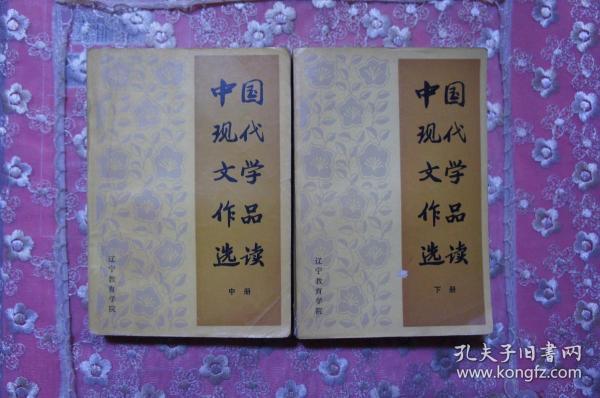 中国
现代
文学
作品
选读
中册
辽宁教育学院
中国
现代
文学
作品
选读
下册
辽宁教育学院
孔夫子旧书网
www.kongfz.com